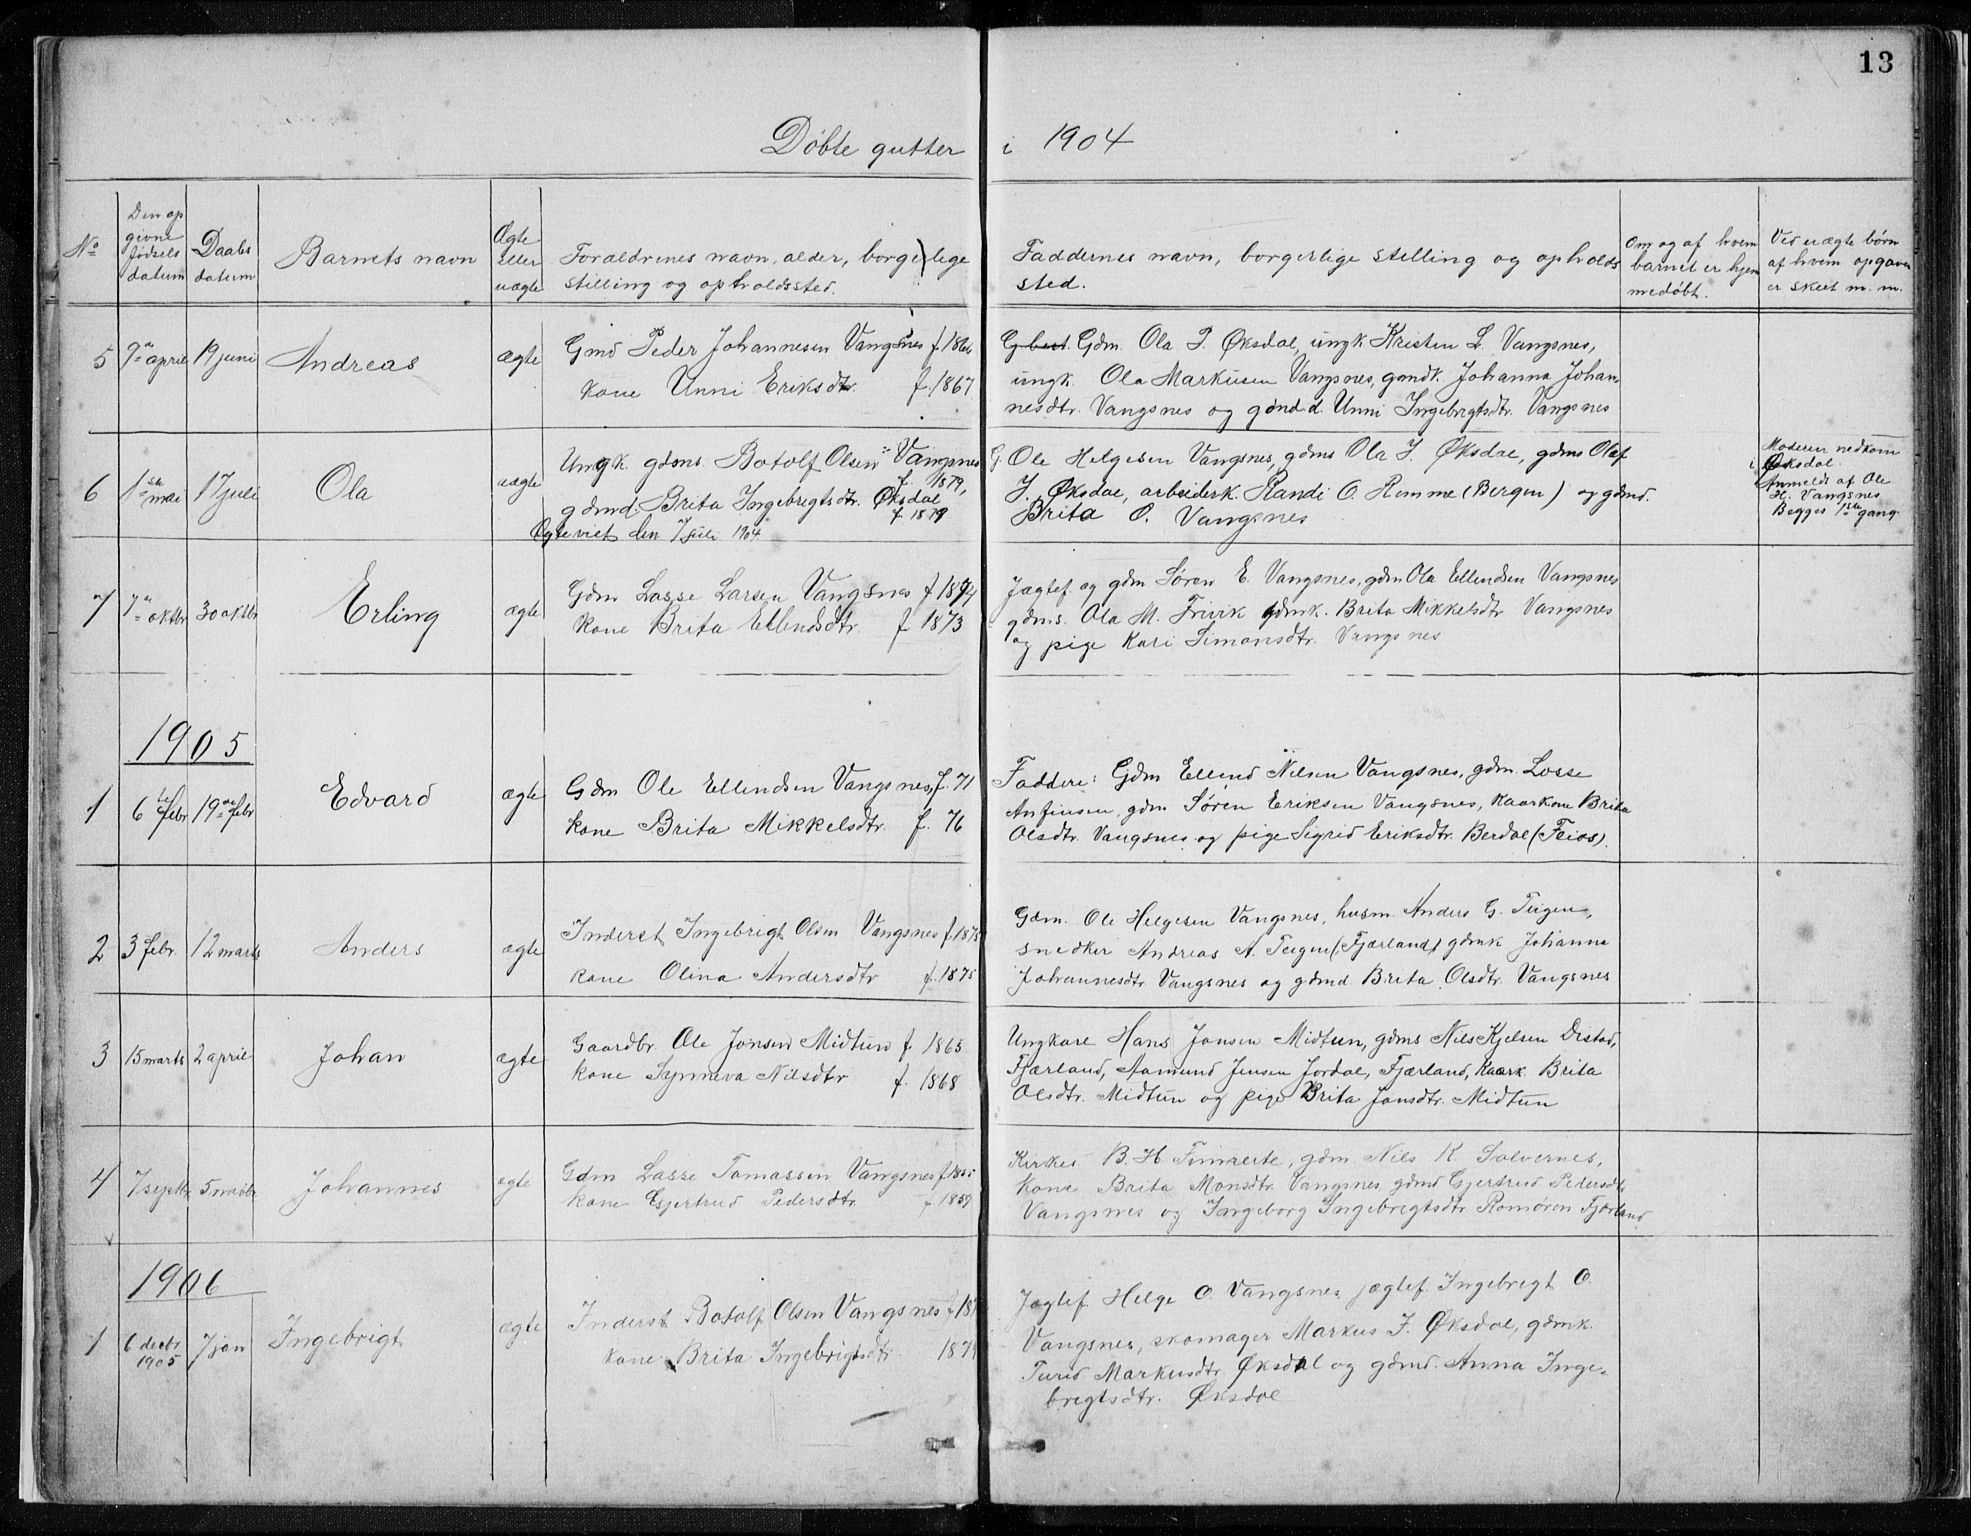 13
Døbte gutter i 1904
No
Den op
givne
fødsels
datum
Daabs
datum
Barnets navn
Ægte
eller
uægte
Foraldrenes navn, alder, borgerlige
stilling og opholdssted.
Faddernes navn, borgerlige stilling og opholds
sted.
Om og af hvem
barnet er hjem
medøbt.
Ved uægte børn
af hvem opgaven
er skeet m. m.
5 9de april 19 juni Andreas ægte
Gmd Peder Johannesen Vangsnes f. 1866
kone Unni Eriksdtr. f. 1867
Gdm. Ola P. Øksdal, ungk Kristen L. Vangsnes,
ungk. Ola Markusen Vangsnes, gmdk. Johanna Johan-
nesdtr. Vangsnes og gdmd. Unni Ingebrigtsdtr. Vangsnes
6 1ste mai 17 juli Ola uægte
Ungk. gdms Botolf Olsen Vangsnes
f. 1879,
gdmd. Brita Ingebrigtsdtr. Øksdal
f. 1879
Ægteviet den 7 juli 1904
G. Ole Helgesen Vangsnes, gdms Ola J. Øksdal, gdms Olaf
J. Øksdal, arbeiderk. Randi O. Romme (Bergen) og gdmd.
Brita O. Vangsnes
Moderen nedkom
i Øksdal.
Anmeldt af Ole
H. Vangsnes
Begges 1ste gang
7 7de oktbr 30 oktbr Erling ægte
Gdm Lasse Larsen Vangsnes f 1874
kone Brita Ellendsdtr. f 1873
Jægtef. og gdm Søren E. Vangsnes, gdm Ola Ellendsen Vangsnes
gdms. Ola M. Frivik gdmk. Brita Mikkelsdtr Vangsnes
og pige Kari Simonsdtr. Vangsnes
1905
1 6te febr 19de febr Edvard ægte
Gdm Ole Ellendsen Vangsnes, f. 71
kone Brita Mikkelsdtr. f. 76
Faddere: Gdm Ellend Nilsen Vangsnes, gdm. Lasse
Anfinsen, gdm Søren Eriksen Vangsnes, kaarkone Brita
Olsdtr. Vangsnes og pige Sigrid Eriksdtr. Berdal (Feios).
2 3 febr. 12 marts Anders ægte
Inderst Ingebrigt Olsen Vangsnes f. 1875
kone Olina Andersdtr f. 1875
Gdm. Ole Helgesen Vangsnes, husm. Anders G. Teigen,
snedker Andreas A. Teigen (Fjærland) gdmk Johanna
Johannesdtr. Vangsnes og gdmd Brita Olsdtr. Vangsnes
3 15 marts 2 april Johan ægte
Gaardbr. Ole Jonsen Midtun f. 1865
kone Synneva Nilsdtr f. 1868
Ungkare Hans Jonsen Midtun, gdms Nils Kjelsen Distad,
Fjærland, Aamund Jensen Jordal, Fjærland, kaark. Brita
Olsdtr. Midtun og pige Brita Jonsdtr. Midtun
4 7 septbr 5 novbr Johannes ægte
Gdm Lasse Tomassen Vangsnes f 1855
kone Gjertrud Pedersdtr. f 1859
Kirkes B. H. Timreite, gdm. Nils K Salvernes,
kone Brita Monsdtr. Vangsnes gdmd Gjertrud Pedersdtr
Vangsnes og Ingeborg Ingebrigtsdtr. Romøren Fjærland
1906
1 6 decbr 7 jan Ingebrigt ægte
1905
Inderst Botolf Olsen Vangsnes f. 18
kone Brita Ingebrigtsdtr. 1879
Jægtef. Helge O. Vangsnes jægtef. Ingebrigt O.
Vangsnes, skomager Markus J. Øksdal, gdmk.
Turid Markusdtr. Øksdal og gdmd. Anna Inge-
brigtsdtr. Øksdal